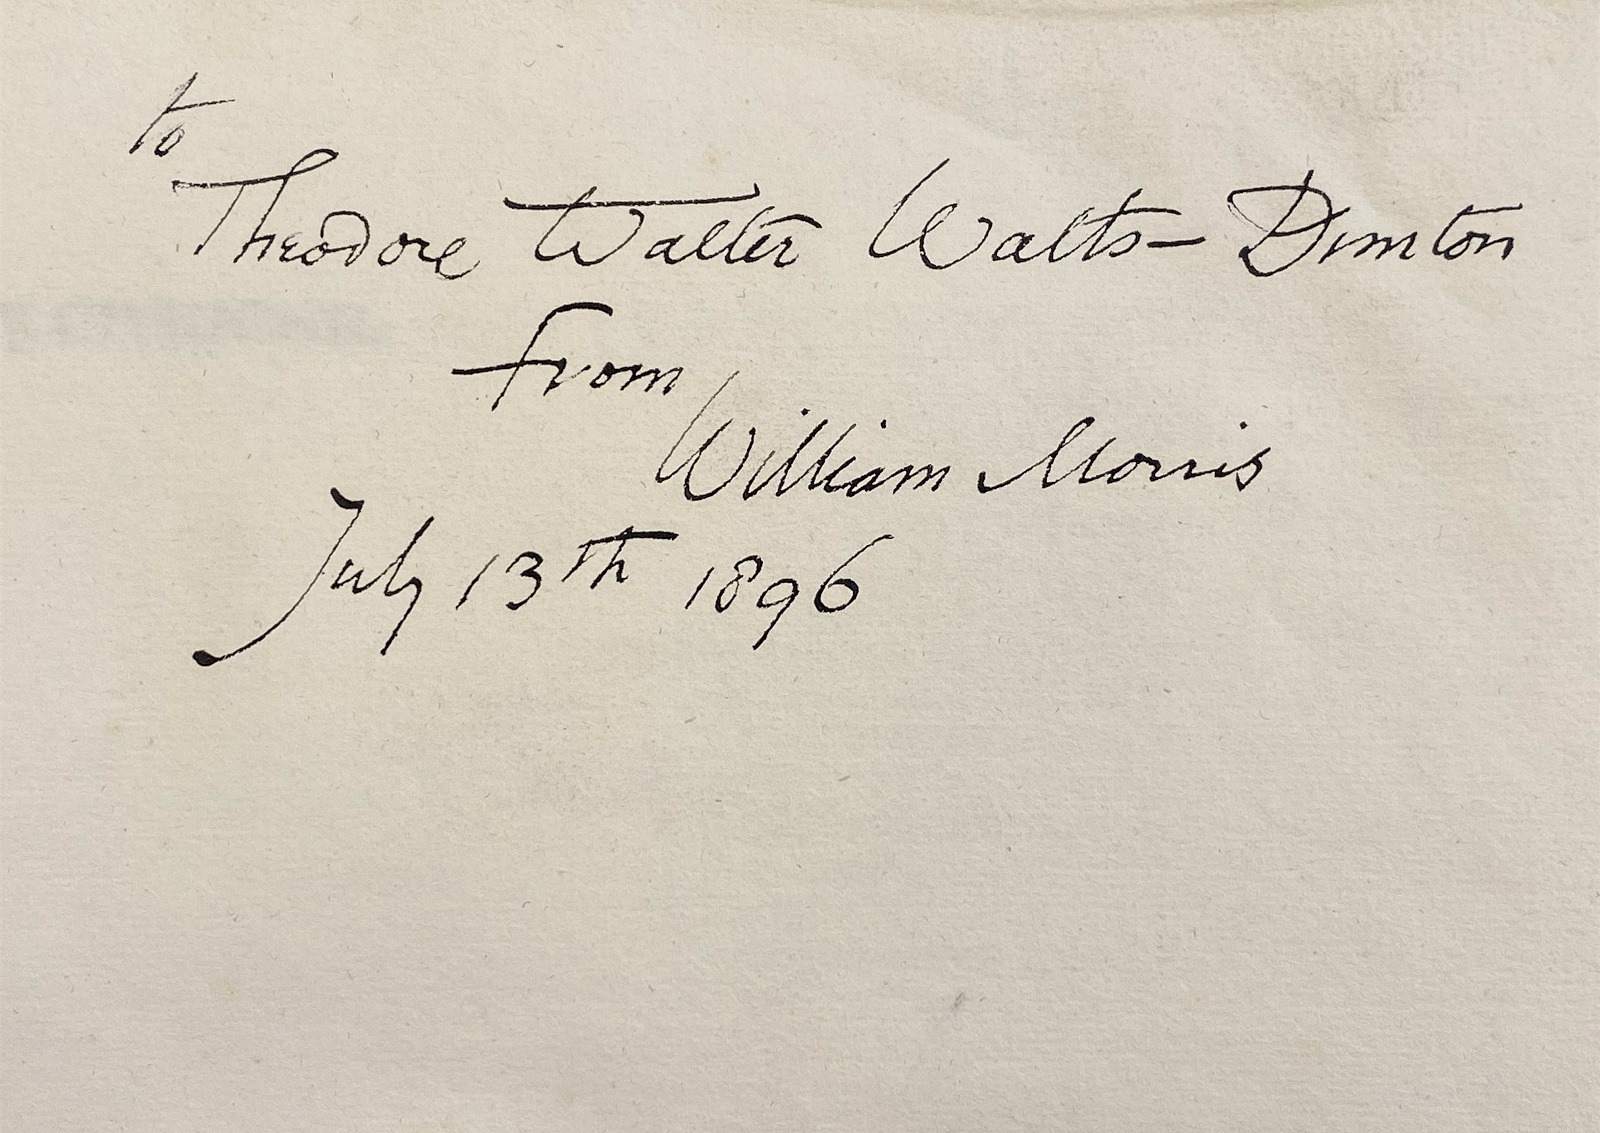 to
Theodore Walter Watts-Dunton
from
William Morris
July 13th 1896